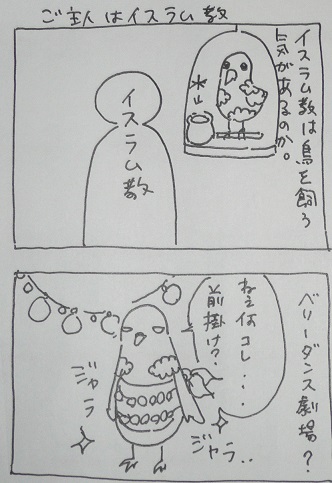 ご主人はイスラム教
イスラム教は鳥を飼う
気があるのか。
水
イスラム教
ベリーダンス劇場？
ねぇ何コレ・・・
前掛け？
ジャラ
ジャラ・・